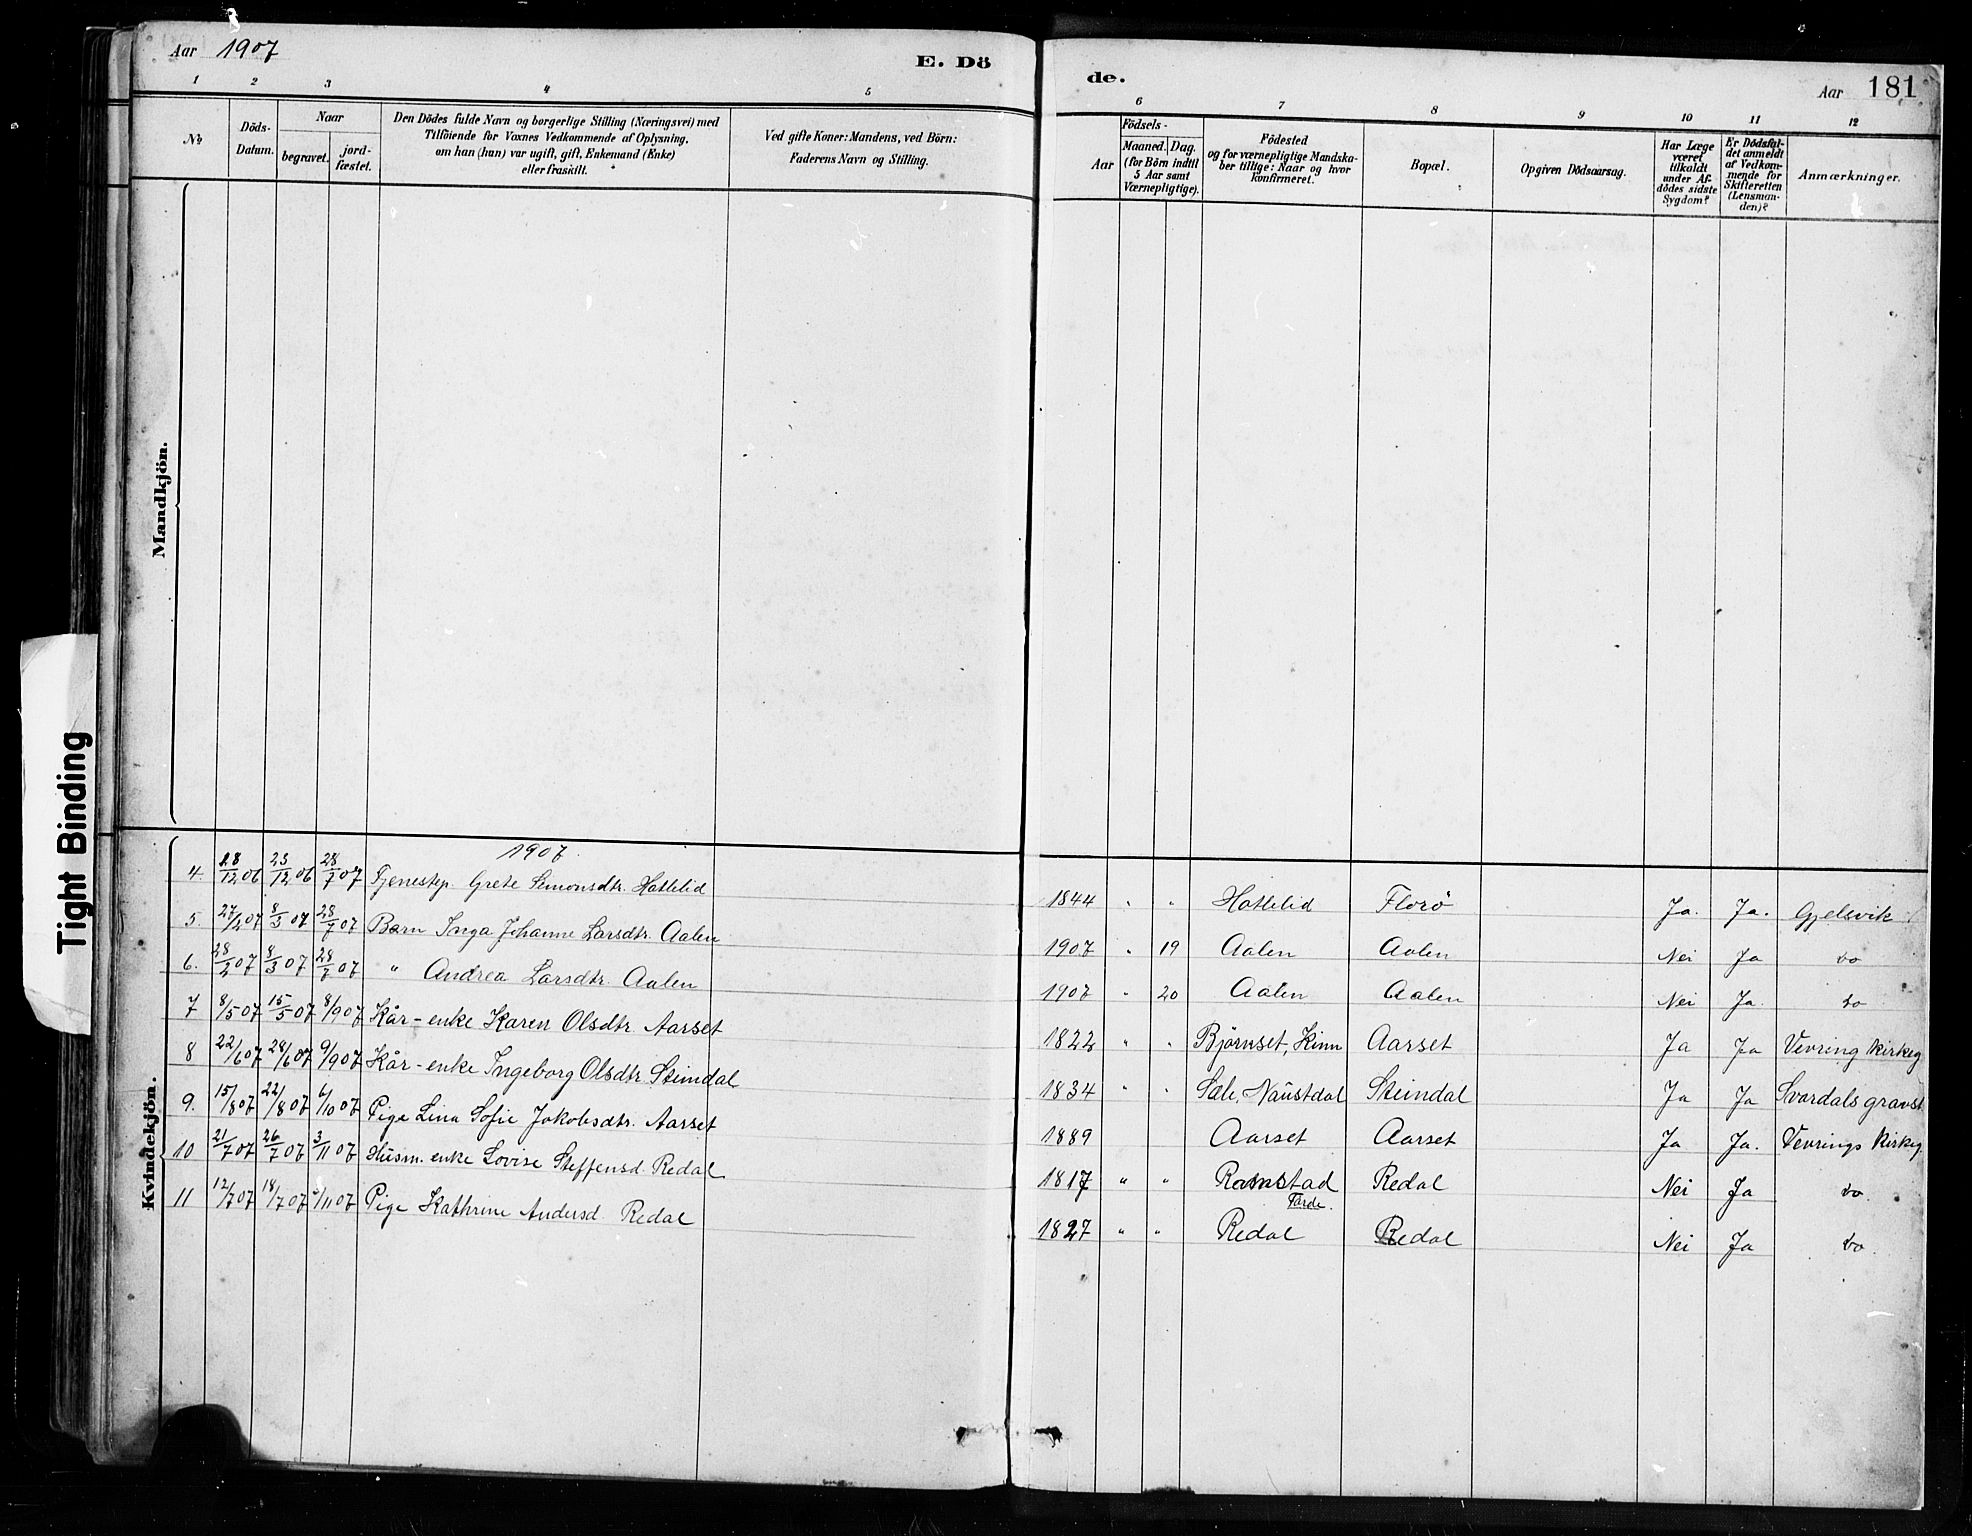 Aar 1907
E. Dö
de.
Aar 181
1 2 3 4 5 6 7 8 9 10 11 12
No
Döds-Datum.
Naar
begravet.
jord-fæstet.
Den Dödes fulde Navn og borgerlige Stilling (Næringsvei) med
Tilföiende for Voxnes Vedkommende af Oplysning,
om han (hun) var ugift, gift, Enkemand (Enke)
eller fraskilt.
Ved gifte Koner: Mandens, ved Börn:
Faderens Navn og Stilling.
Födsels-
Aar
Maaned. Dag.
(for Börn indtil
5 Aar samt
Værnepligtige).
Födested
og for værnepligtige Mandska-
ber tillige: Naar og hvor
konfirmeret.
Bopæl.
Opgiven Dödsaarsag.
Har Læge
været
tilkaldt
under Af-
dödes sidste
Sygdom?
Er Dödsfal-
det anmeldt
af Vedkom-
mende for
Skifteretten
(Lensman-
den)?
Anmærkninger.
Mandkjön.
Tight Binding
Kvindekjön.
1907.
4. 18/12 06 23/12 06 28/7 07 Tjenestep. Grete Simonsdtr. Hattelid 1844 " " Hattelid Florö Ja. Ja. Gjelsvik
5. 27/2 07 8/3 07 28/7 07 Barn Inga Johanne Larsdtr. Aalen 1907 " 19 Aalen Aalen Nei Ja do
6. 28/2 07 8/3 07 28/7 07 " Andrea Larsdtr. Aalen 1907 " 20 Aalen Aalen Nei Ja. do
7 8/5 07 15/5 07 8/9 07 Kår-enke Karen Olsdtr. Aarset 1822 " " Björnset, Kinn Aarset Ja Ja Vevring kirkeg
8 22/6 07 28/6 07 9/9 07 Kår-enke Ingeborg Olsdtr. Steindal 1834 " " Sæle, Naustdal Steindal Ja Ja Svardals gravst
9. 15/8 07 22/8 07 6/10 07 Pige Lina Sofie Jakobsdtr. Aarset 1889 Aarset Aarset Ja Ja. Vevrings kirkeg.
10 21/7 07 26/7 07 3/11 07 Husm. enke Lovise Steffensd. Redal 1817 " " Ramstad Förde. Redal Nei Ja do.
11 12/7 07 18/7 07 /11 07 Pige Kathrine Andersd. Redal 1827 " " Redal Redal Nei Ja do.